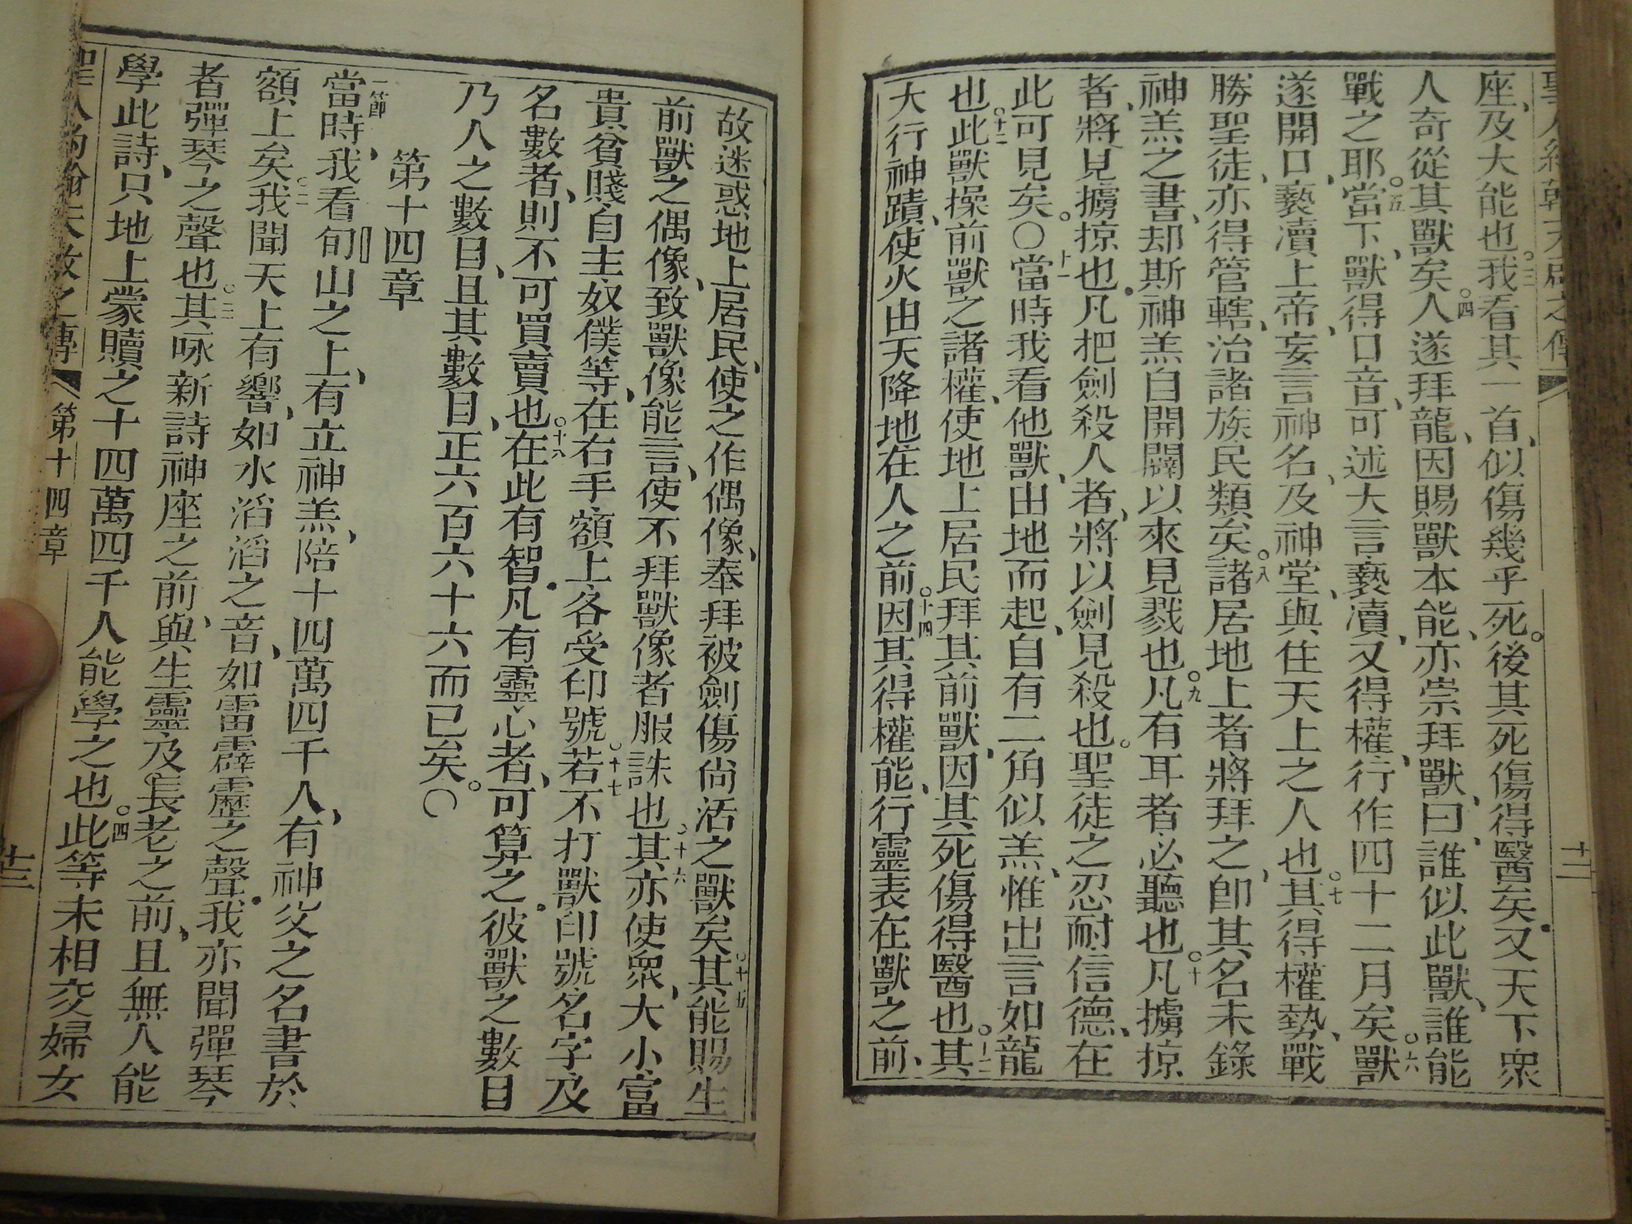 座、及大能也。三我看其一首、似傷幾乎死。後其死傷得醫矣。又天下衆
人奇從其獸矣。四人遂拜龍、因賜獸本能、亦崇拜獸、曰、誰似此獸、誰能
戰之耶。五當下、獸得口音、可述大言褻瀆、又得權、行作四十二月矣。六獸
遂開口、褻瀆上帝、妄言神名、及神堂、與住天上之人也。七其得權勢、戰
勝聖徒、亦得管轄、治諸族民類矣。八諸居地上者將拜之、卽其名未錄
神羔之書、却斯神羔自開闢以來見戮也。九凡有耳者必聽也。十凡擄掠
者、將見擄掠也。凡把劍殺人者、將以劍見殺也。聖徒之忍耐信德、在
此可見矣。〇十一當時我看他獸、由地而起、自有二角似羔、惟出言如龍
也。十二此獸操前獸之諸權、使地上居民拜其前獸、因其死傷得醫也。十三其
大行神蹟、使火由天降地在人之前。十四因其得權能、行靈表在獸之前、
十二
故迷惑地上居民、使之作偶像、奉拜被劍傷尚活之獸矣。十五其能賜生
前獸之偶像、致獸像能言、使不拜獸像者服誅也。十六其亦使衆、大小、富
貴、貧賤、自主、奴僕等、在右手、額上、各受印號。十七若不打獸印號、名字、及
名數者、則不可買賣也。十八在此有智。凡有靈心者、可算之。彼獸之數目
乃人之數目、且其數目、正六百六十六而已矣。〇
第十四章
一節當時、我看旬山之上、有立神羔、陪十四萬四千人、有神父之名書於
額上矣。二我聞天上有響、如水滔滔之音、如雷霹靂之聲。我亦聞彈琴
者彈琴之聲也。三其咏新詩神座之前、與生靈及長老之前、且無人能
學此詩、只地上蒙贖之十四萬四千人能學之也。四此等未相交婦女
第十四章